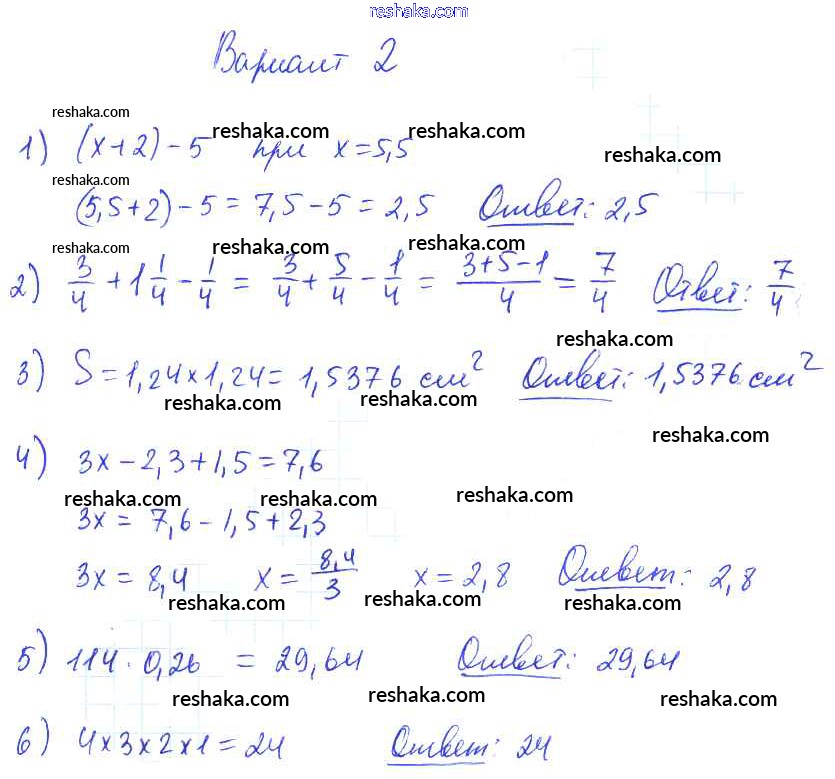 reshaka.com
Вариант 2
reshaka.com
1) (x+2)-5 при x=5,5
reshaka.com reshaka.com reshaka.com
reshaka.com
(5,5+2)-5=7,5-5=2,5 Ответ: 2,5
reshaka.com reshaka.com reshaka.com
2) 3/4 + 1 1/4 - 1/4 = 3/4 + 5/4 - 1/4 = (3+5-1)/4 = 7/4 Ответ: 7/4
reshaka.com
3) S=1,24×1,24=1,5376 см² Ответ: 1,5376 см²
reshaka.com reshaka.com
reshaka.com
4) 3x-2,3+1,5=7,6
reshaka.com reshaka.com reshaka.com
3x=7,6-1,5+2,3
3x=8,4 x=8,4/3 x=2,8 Ответ: 2,8
reshaka.com reshaka.com reshaka.com
5) 114·0,26 = 29,64 Ответ: 29,64
reshaka.com reshaka.com reshaka.com
6) 4×3×2×1=24 Ответ: 24